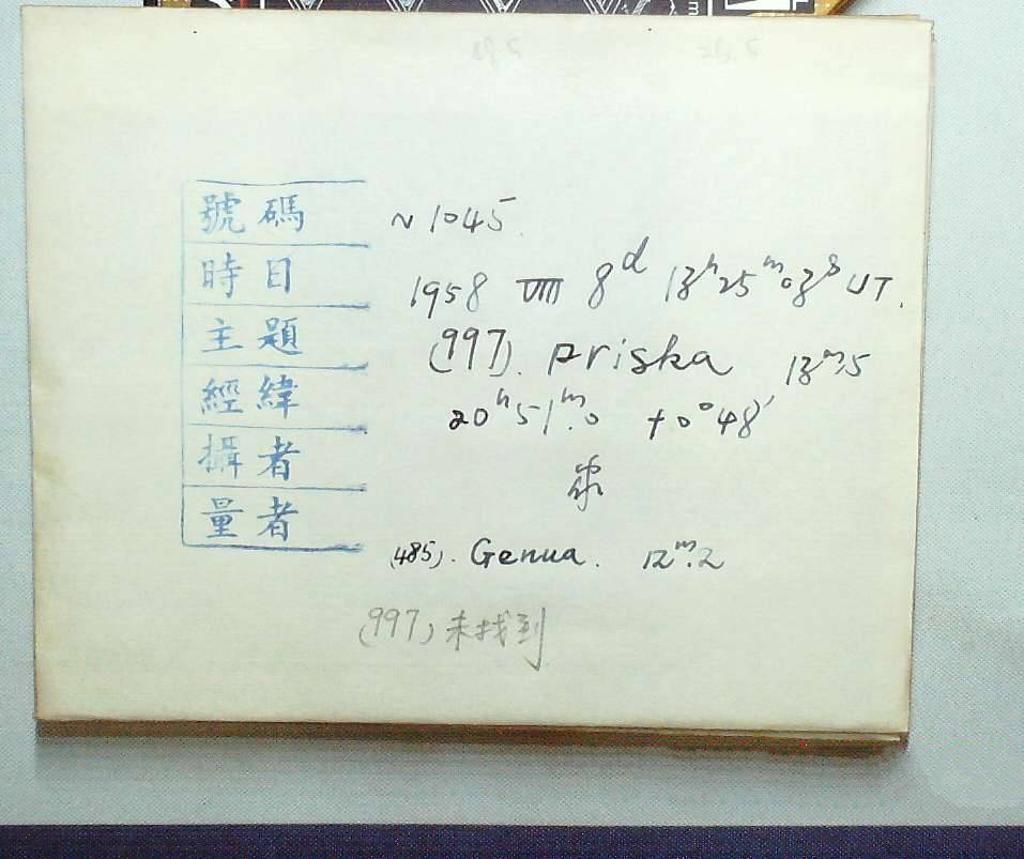 號碼 N 1045.
時日 1958 VIII 8d 13h 25m 03s UT.
主題 (997). Priska 13m.5
經緯 20h 51m.0 +0° 48'
攝者
量者
(485). Genua. 12m.2
(997) 未找到